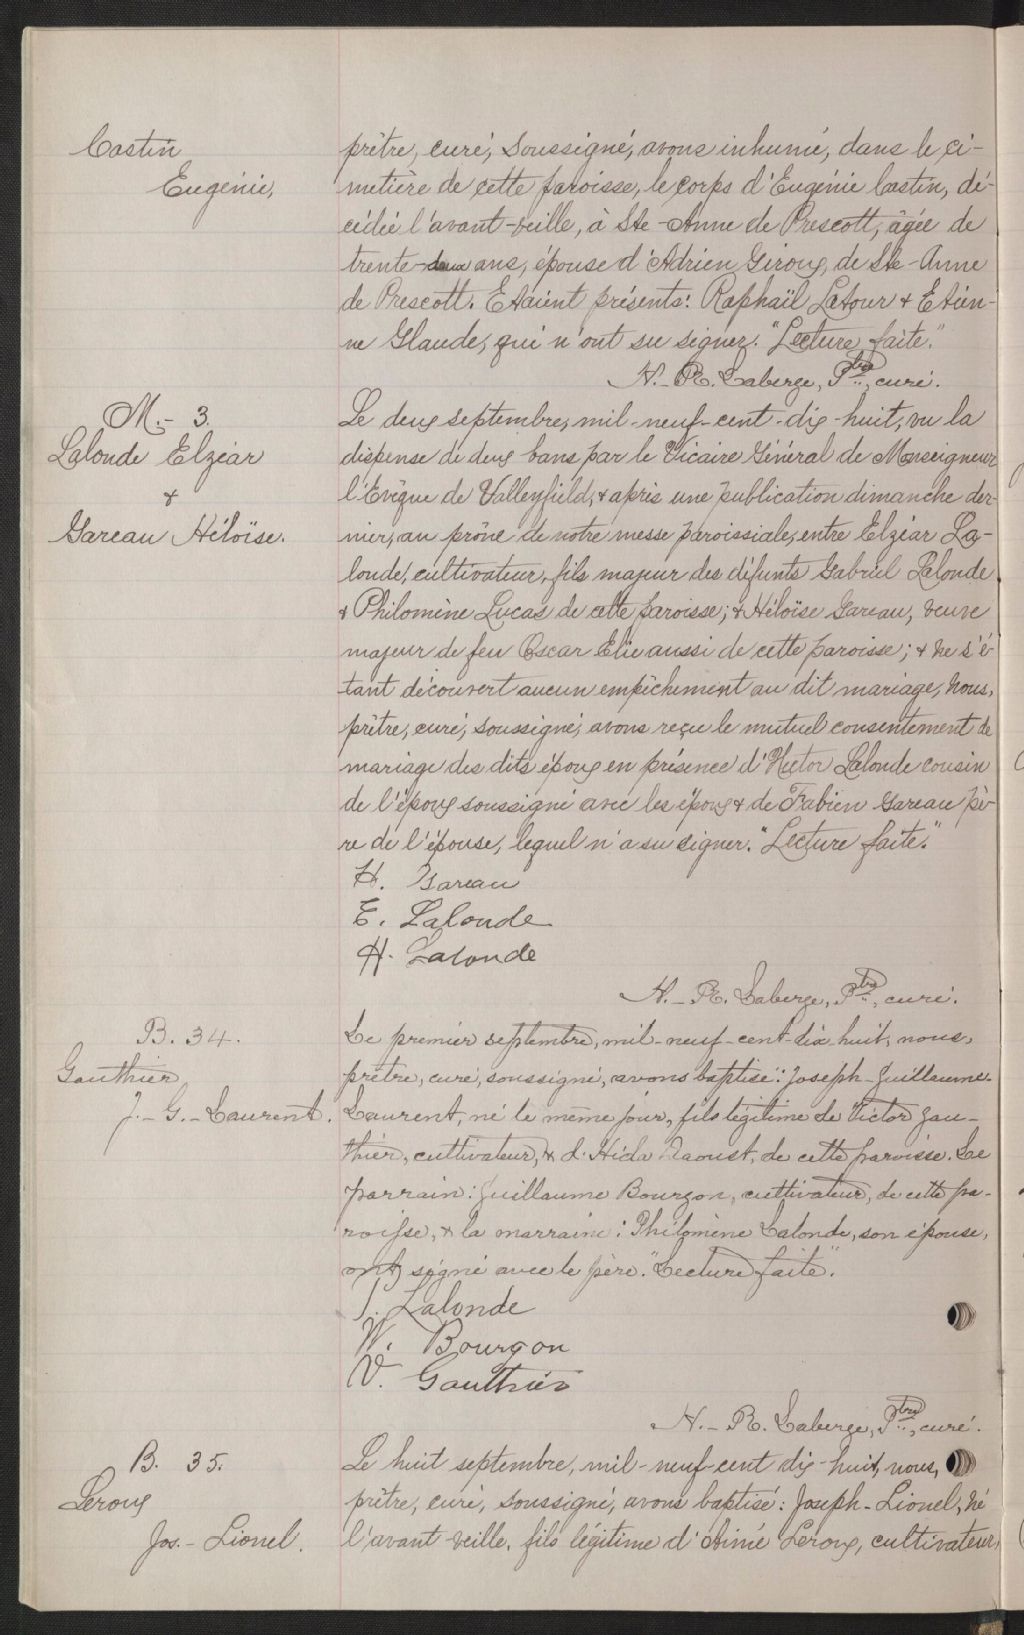 Castin
Eugénie,
prêtre, curé, soussigné, avons inhumé, dans le ci-
metière de cette paroisse, le corps d'Eugénie Castin, dé-
cédée l'avant-veille, à Ste-Anne de Prescott, âgée de
trente-deux ans, épouse d'Adrien Giroux, de Ste-Anne
de Prescott. Etaient présents: Raphaïl Latour & Etien-
ne Glaude, qui n'ont su signer. "Lecture faite."
N.-R. Laberge, Ptre, curé.
M.- 3.
Lalonde Elzéar
&
Gareau Héloïse.
Le deux septembre, mil-neuf-cent-dix-huit, vu la
dispense de deux bans par le Vicaire Général de Monseigneur
l'Evêque de Valleyfield, & après une publication dimanche der-
nier, au prône de notre messe paroissiale, entre Elzéar La-
londe, cultivateur, fils majeur des défunts Gabriel Lalonde
& Philomène Lucas de cette paroisse; & Héloïse Gareau, veuve
majeur de feu Oscar Elie aussi de cette paroisse; & ne s'é-
tant découvert aucun empêchement au dit mariage, nous,
prêtre, curé, soussigné, avons reçu le mutuel consentement de
mariage des dits époux en présence d'Hector Lalonde cousin
de l'époux soussigné avec les époux & de Fabien Gareau pè-
re de l'épouse, lequel n'a su signer. "Lecture faite."
H. Gareau
E. Lalonde
H. Lalonde
N.-R. Laberge, Ptre, curé.
B. 34.
Gauthier
J.-G.-Laurent.
Le premier septembre, mil-neuf-cent-dix-huit, nous,
prêtre, curé, soussigné, avons baptisé: Joseph-Guillaume-
Laurent, né le même jour, fils légitime de Victor Gau-
thier, cultivateur, & d'Hida Daoust, de cette paroisse. Le
parrain: Guillaume Bourgon, cultivateur, de cette pa-
roisse, & la marraine: Philomène Lalonde, son épouse,
ont signé avec le père. "Lecture faite".
P. Lalonde
W. Bourgon
V. Gauthier
N.-R. Laberge, Ptre, curé.
B. 35.
Leroux
Jos.-Lionel.
Le huit septembre, mil-neuf-cent dix-huit, nous,
prêtre, curé, soussigné, avons baptisé: Joseph-Lionel, né
l'avant-veille, fils légitime d'Aimé Leroux, cultivateur,